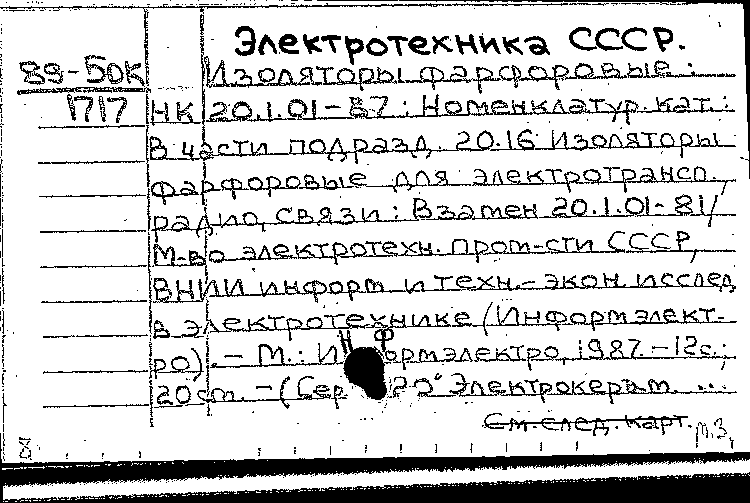 Электротехника СССР.
89-50К Изоляторы фарфоровые:
1717 НК 20.1.01-87: Номенклатур. кат.:
В части подразд. 20.16 Изоляторы
фарфоровые для электротрансп.,
радио, связи: Взамен 20.1.01-81/
М-во электротехн. пром-сти СССР,
ВНИИ информ. и техн.-экон. исслед.
в электротехнике (Информэлект-
ро). - М.: Информэлектро, 1987. - 12с.;
20см. - (Сер. 20 Электрокерам. ...
См. след. карт.